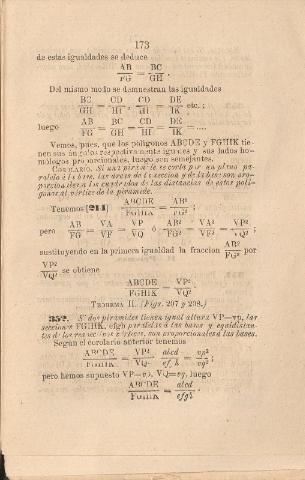 173
de estas igualdades se deduce
AB/FG = BC/GH.
Del mismo modo se demuestran las igualdades
BC/GH = CD/HI, CD/HI = DE/IK, etc.;
luego AB/FG = BC/GH = CD/HI = DE/IK = ....
Vemos, pues, que los polígonos ABCDE y FGHIK tie-
nen sus ángulos respectivamente iguales y sus lados ho-
mólogos proporcionales, luego son semejantes.
COROLARIO. Si una pirámide es corta por un plano pa-
ralelo á la base, las áreas de la seccion y de la base son pro-
porcionales á los cuadrados de las distancias de estos polí-
gonos al vértice de la pirámide.
Tenemos [244] ABCDE/FGHIK = AB²/FG²;
pero AB/FG = VA/VF = VP/VQ ó AB²/FG² = VA²/VF² = VP²/VQ²;
sustituyendo en la primera igualdad la fraccion AB²/FG² por
VP²/VQ² se obtiene
ABCDE/FGHIK = VP²/VQ².
TEOREMA II. (Figs. 207 y 208.)
352. Si dos pirámides tienen igual altura VP=vp, las
secciones FGHIK, efgh paralelas á las bases y equidistan-
tes de los respectivos vértices, son proporcionales á las bases.
Segun el corolario anterior tenemos
ABCDE/FGHIK = VP²/VQ², abcd/efgh = vp²/vq²;
pero hemos supuesto VP=vp, VQ=vq, luego
ABCDE/FGHIK = abcd/efgh.